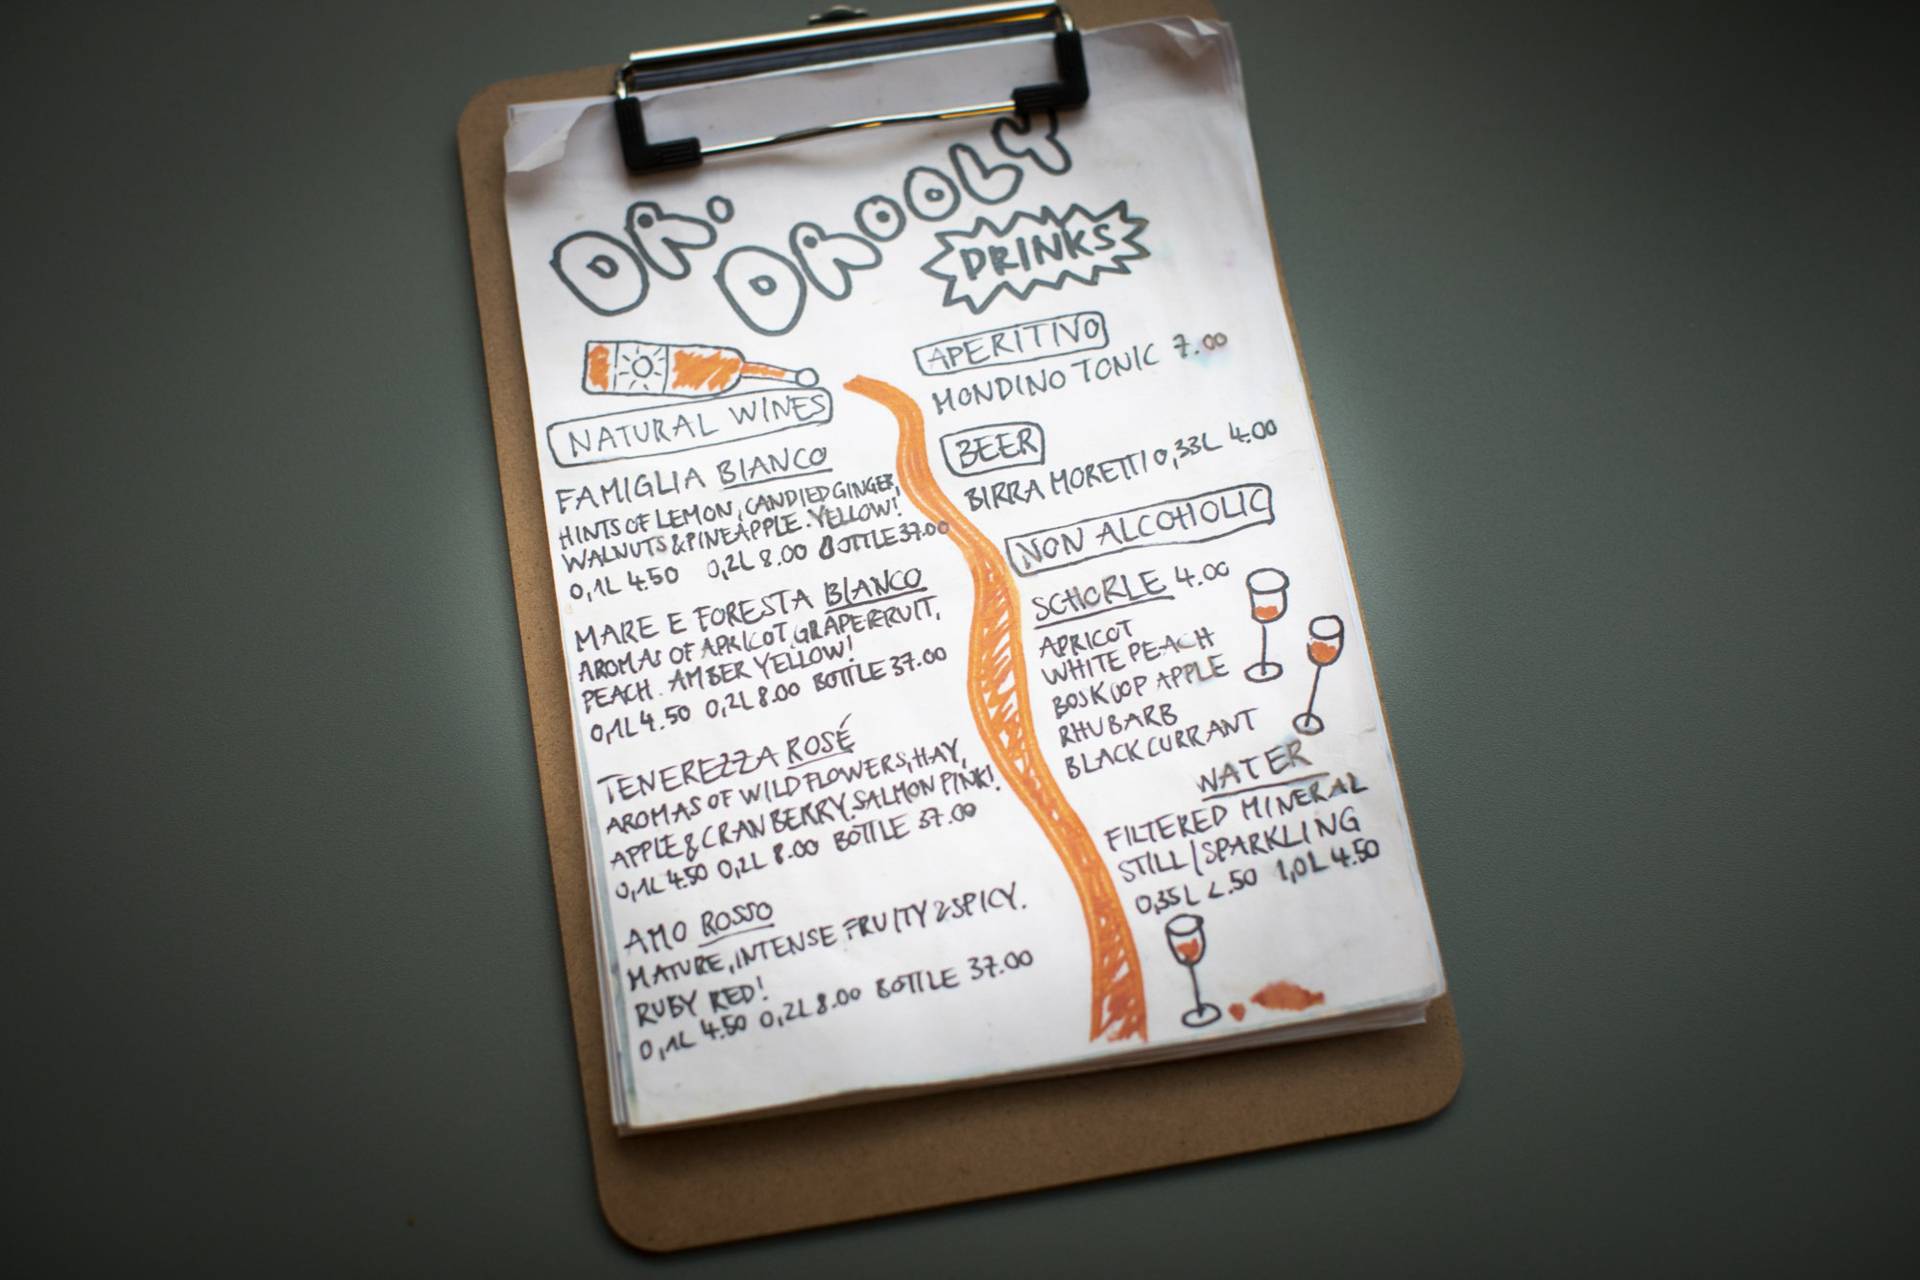 DR. DROOLY
DRINKS
NATURAL WINES
FAMIGLIA BIANCO
HINTS OF LEMON, CANDIED GINGER,
WALNUTS & PINEAPPLE. YELLOW!
0,1L 4.50 0,2L 8.00 BOTTLE 37.00
MARE E FORESTA BIANCO
AROMAS OF APRICOT, GRAPEFRUIT,
PEACH. AMBER YELLOW!
0,1L 4.50 0,2L 8.00 BOTTLE 37.00
TENEREZZA ROSÉ
AROMAS OF WILD FLOWERS, HAY,
APPLE & CRANBERRY. SALMON PINK!
0,1L 4.50 0,2L 8.00 BOTTLE 37.00
AMO ROSSO
MATURE, INTENSE FRUITY & SPICY.
RUBY RED!
0,1L 4.50 0,2L 8.00 BOTTLE 37.00
APERITIVO
MONDINO TONIC 7.00
BEER
BIRRA MORETTI 0,33L 4.00
NON ALCOHOLIC
SCHORLE 4.00
APRICOT
WHITE PEACH
BOSKOOP APPLE
RHUBARB
BLACK CURRANT
WATER
FILTERED MINERAL
STILL/SPARKLING
0,35L 2.50 1,0L 4.50